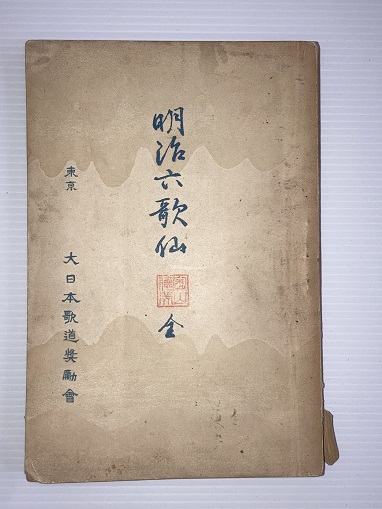 明治六歌仙
全
東京
大日本歌道奨勵會